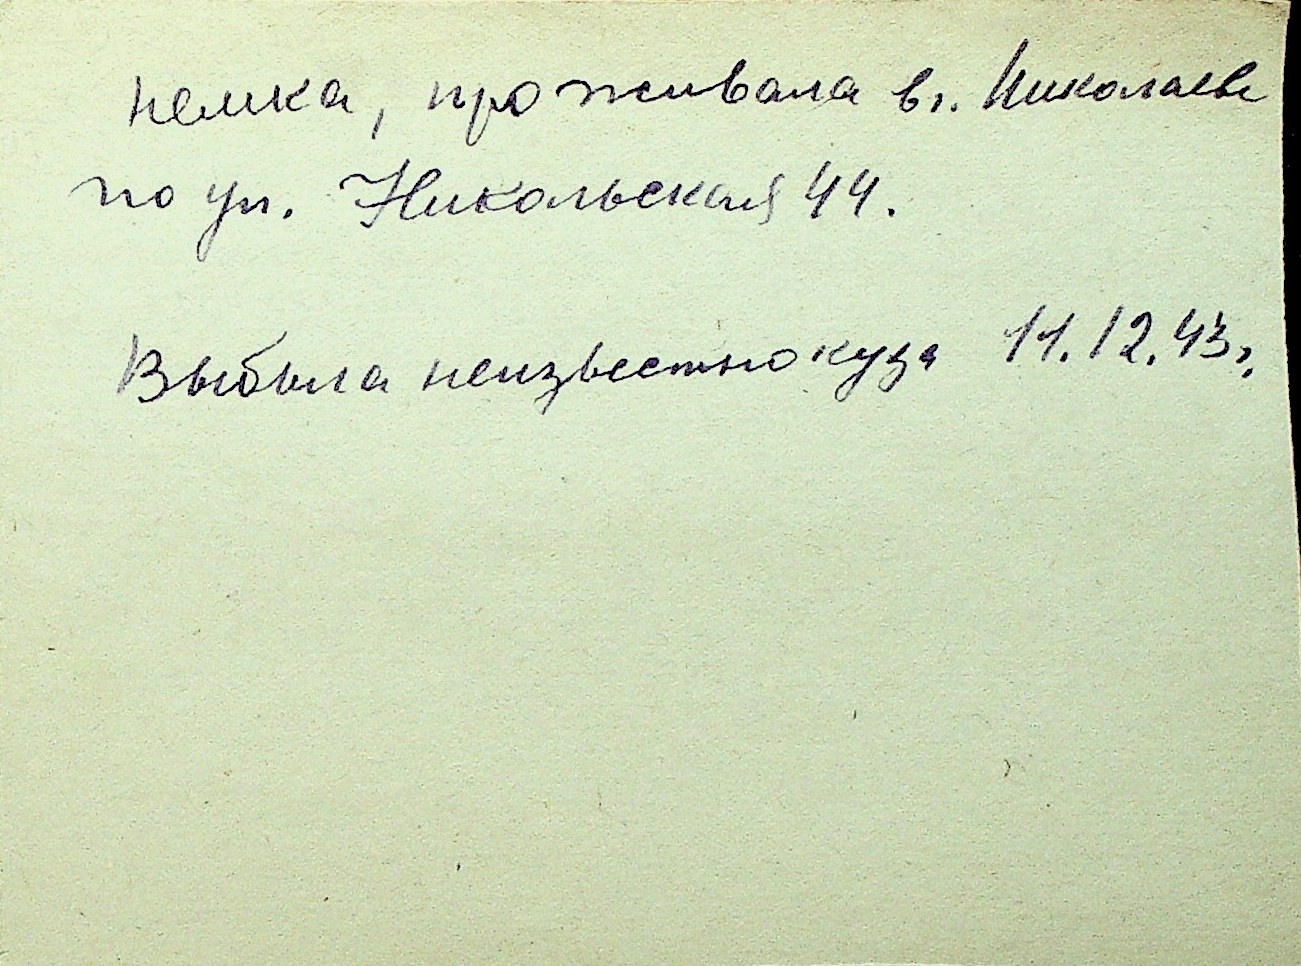 немка, проживала в г. Николаеве
по ул. Никольская 44.
Выбыла неизвестно куда 11.12.43г.